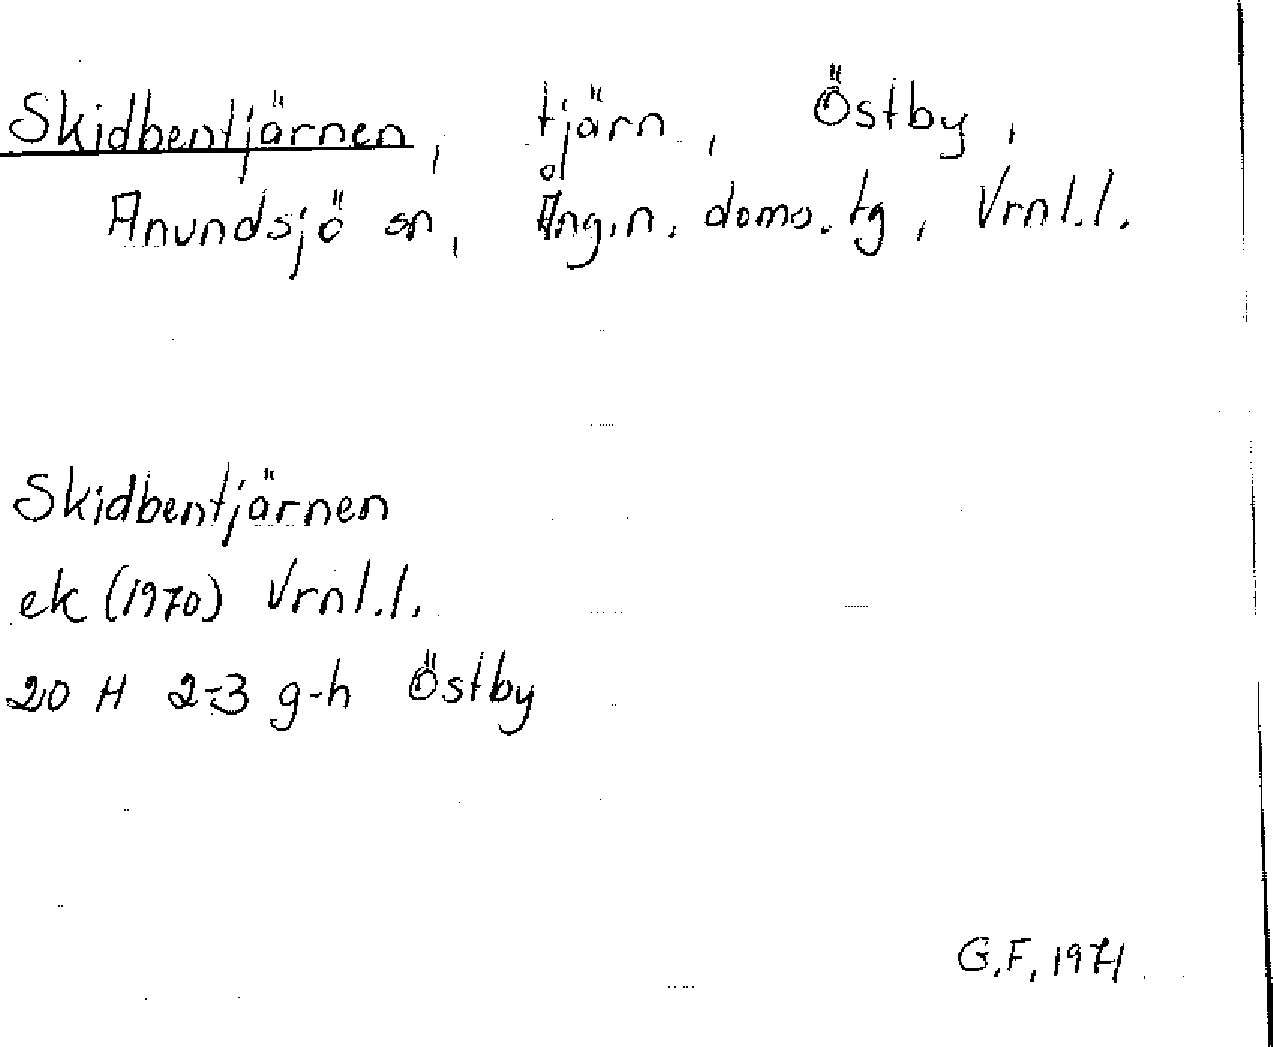 Skidbentjärnen, tjärn, Östby,
Anundsjö sn, Ång.n. doms. tg, Vrnl.l.
Skidbentjärnen
ek (1970) Vrnl.l.
20 H 2-3 g-h Östby
G.F. 1971